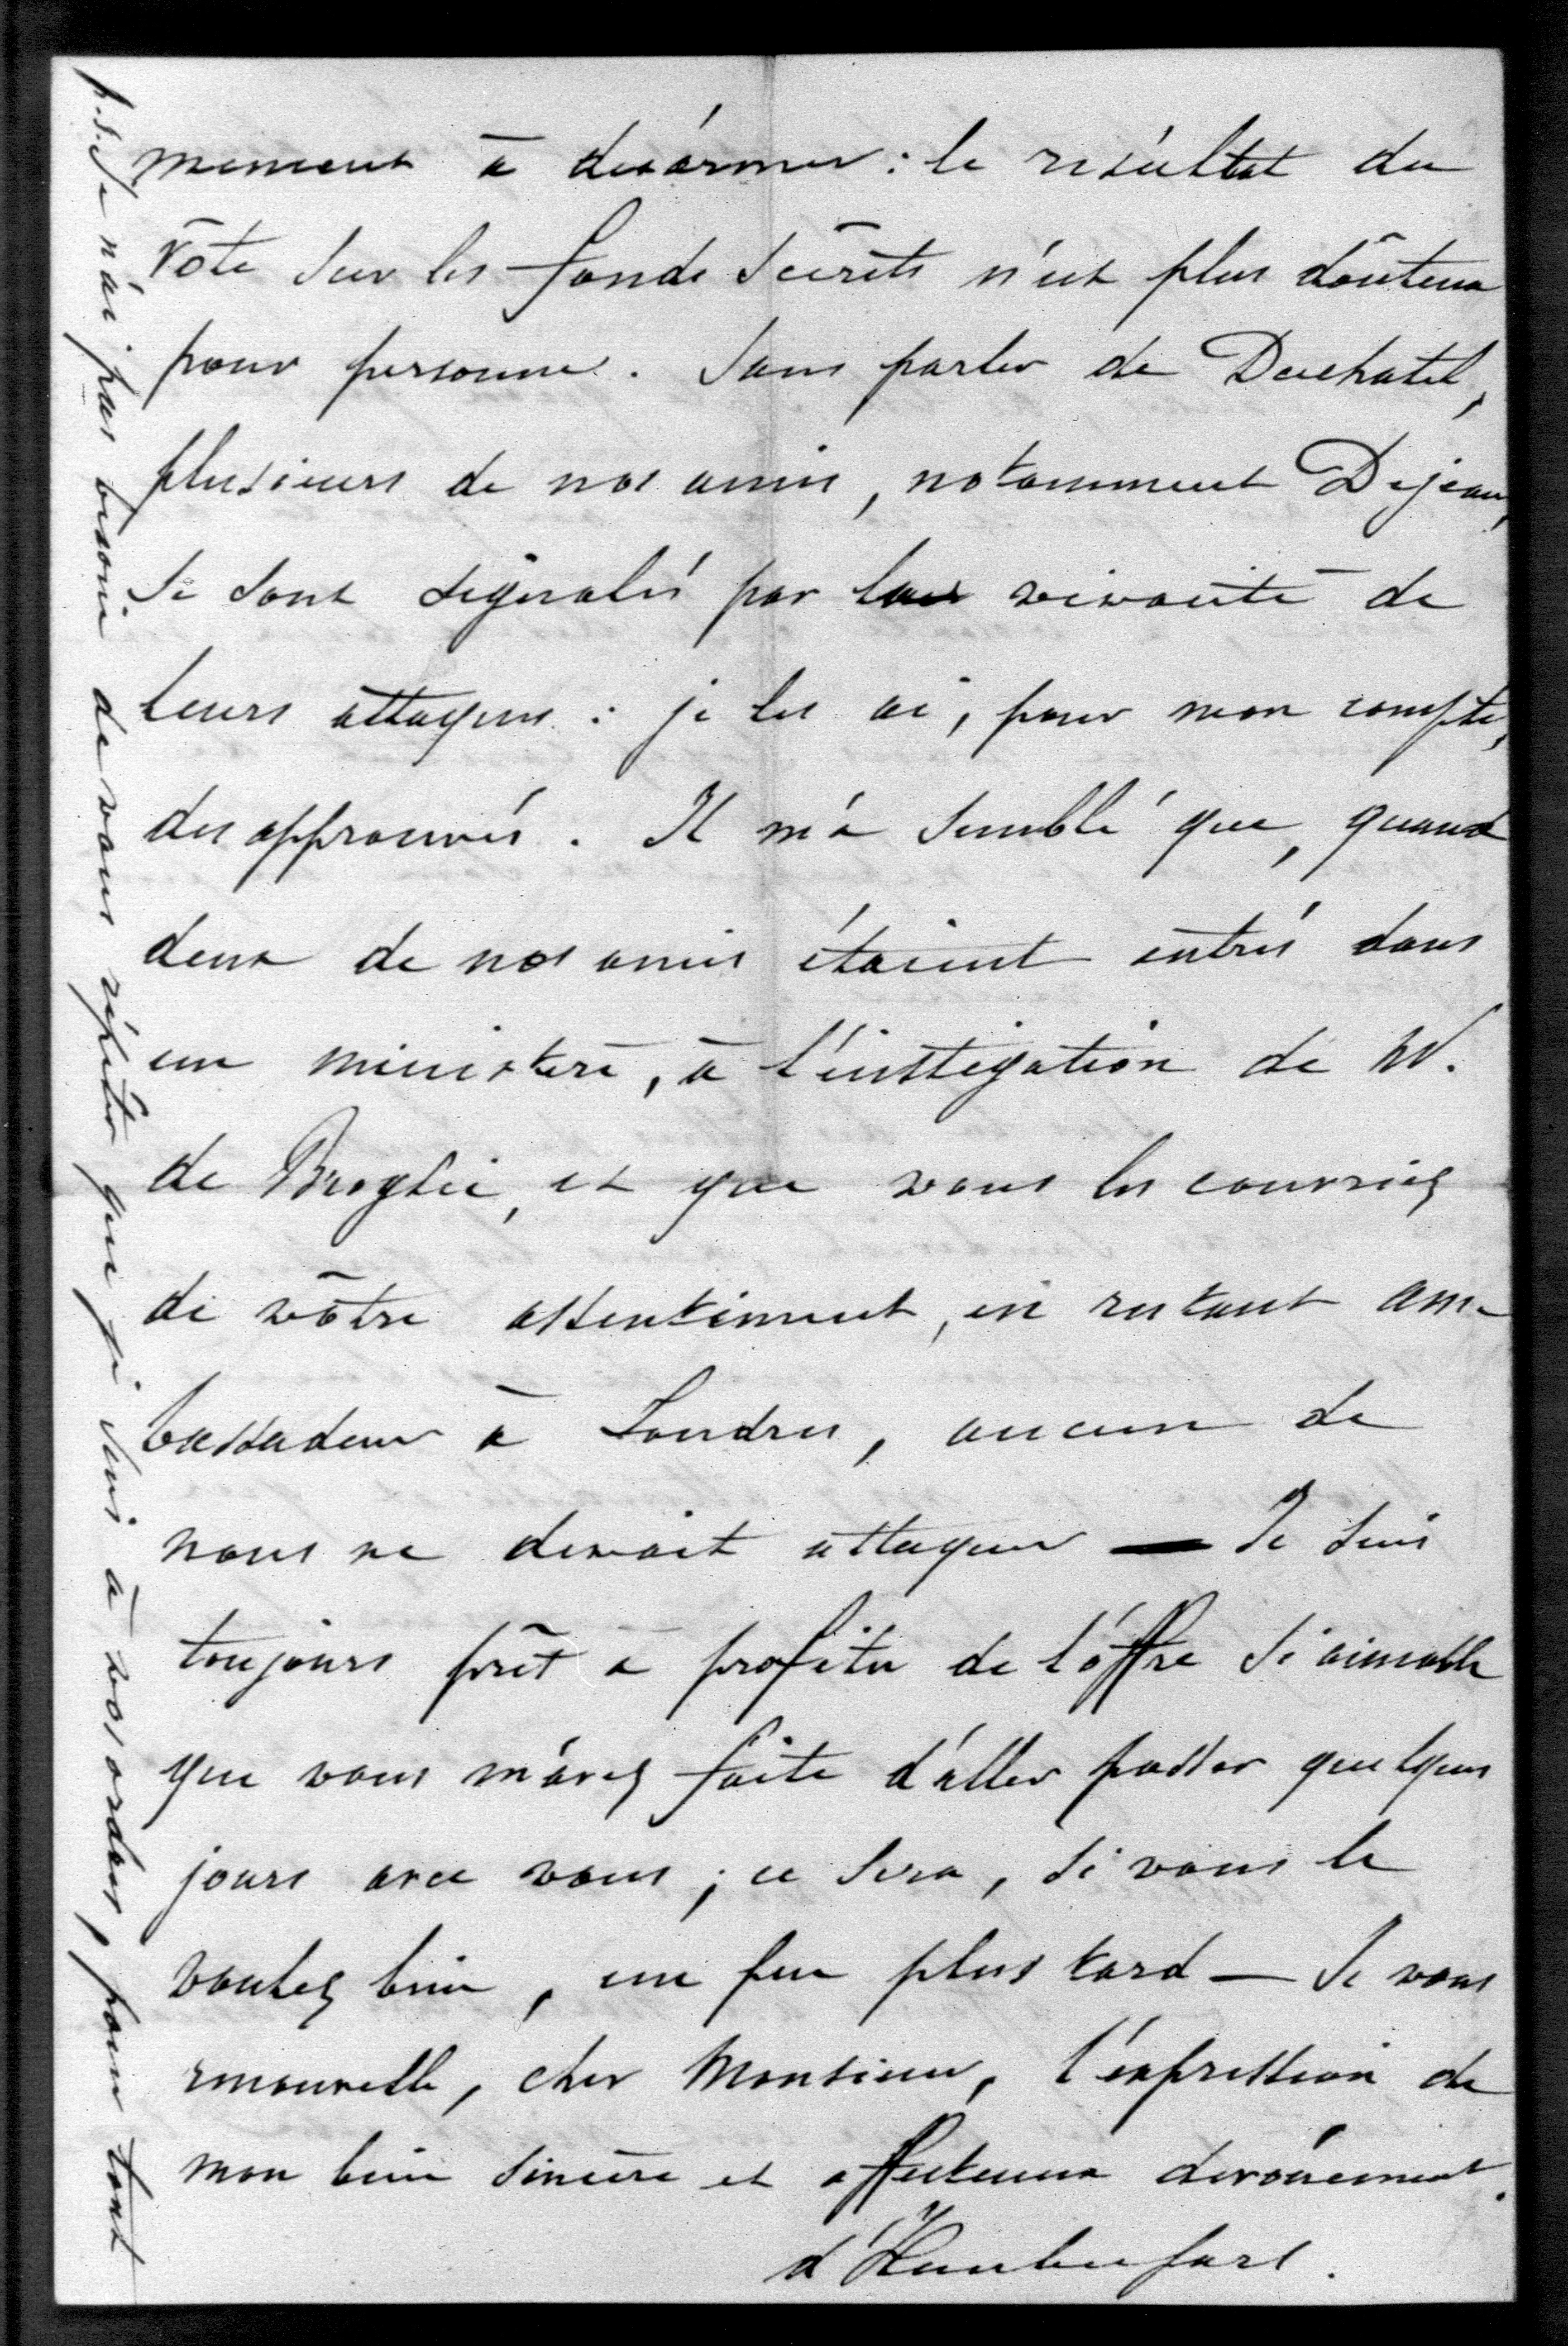 mencent à désarmer : le résultat du
vote sur les fonds secrets n'est plus douteux
pour personne. Sans parler de Duchatel,
plusieurs de nos amis, notamment Dejean,
se sont signalés par la vivacité de
leurs attaques : je les ai, pour mon compte,
désapprouvés. Il m'a semblé que, quand
deux de nos amis étaient entrés dans
un ministère, à l'instigation de M.
de Broglie, et que vous les couvriez
de vôtre assentiment, en restant am-
bassadeur à Londres, aucun de
nous ne devait attaquer — Je suis
toujours prêt à profiter de l'offre si aimable
que vous m'avez faite d'aller passer quelques
jours avec vous ; ce sera, si vous le
voulez bien, un peu plus tard — Je vous
renouvelle, cher Monsieur, l'expression de
mon bien sincère et affectueux dévouement.
d'Haubersart.
p.s. Je n'ai pas besoin de vous répéter que je suis à vos ordres, pour tout